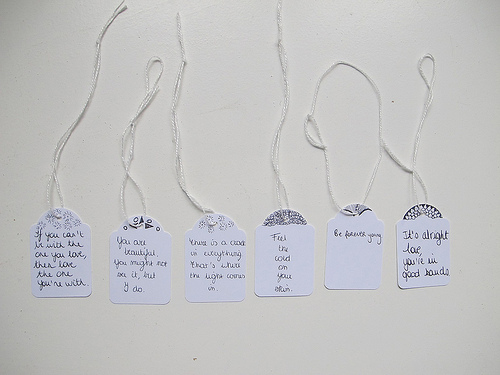 If you can't
be with the
one you love,
then love
the one
you're with.
You are
beautiful
You might not
see it, but
I do.
there is a crack
in everything
that's where
the light comes
in.
Feel
the
cold
on
your
skin.
Be forever young
It's alright
love,
you're in
good hands.